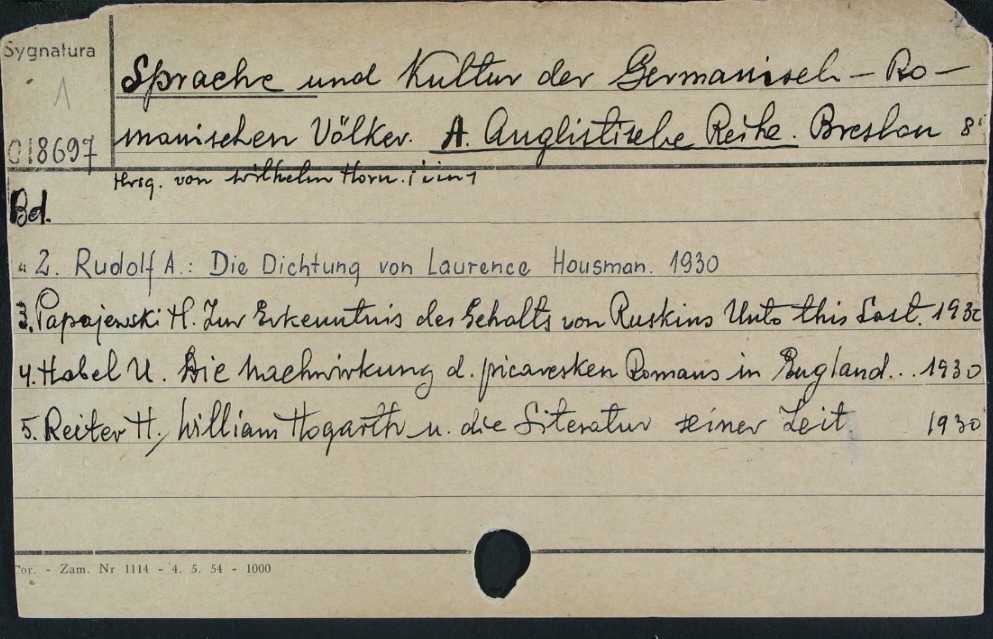 Sygnatura
1
018697
Sprache und Kultur der Germanisch-Ro-
manischen Völker. A. Anglistische Reihe. Breslau 8°
Hrsg. von Wilhelm Horn. i inn
Bd.
" 2. Rudolf A.: Die Dichtung von Laurence Housman. 1930
3. Papajewski H. Zur Erkenntnis des Gehalts von Ruskins Unto this Last. 1932
4. Habel U. Die Nachwirkung d. picaresken Romans in England... 1930
5. Reiter H., William Hogarth u. die Literatur seiner Zeit 1930
Tor. - Zam. Nr 1114 - 4. 5. 54 - 1000